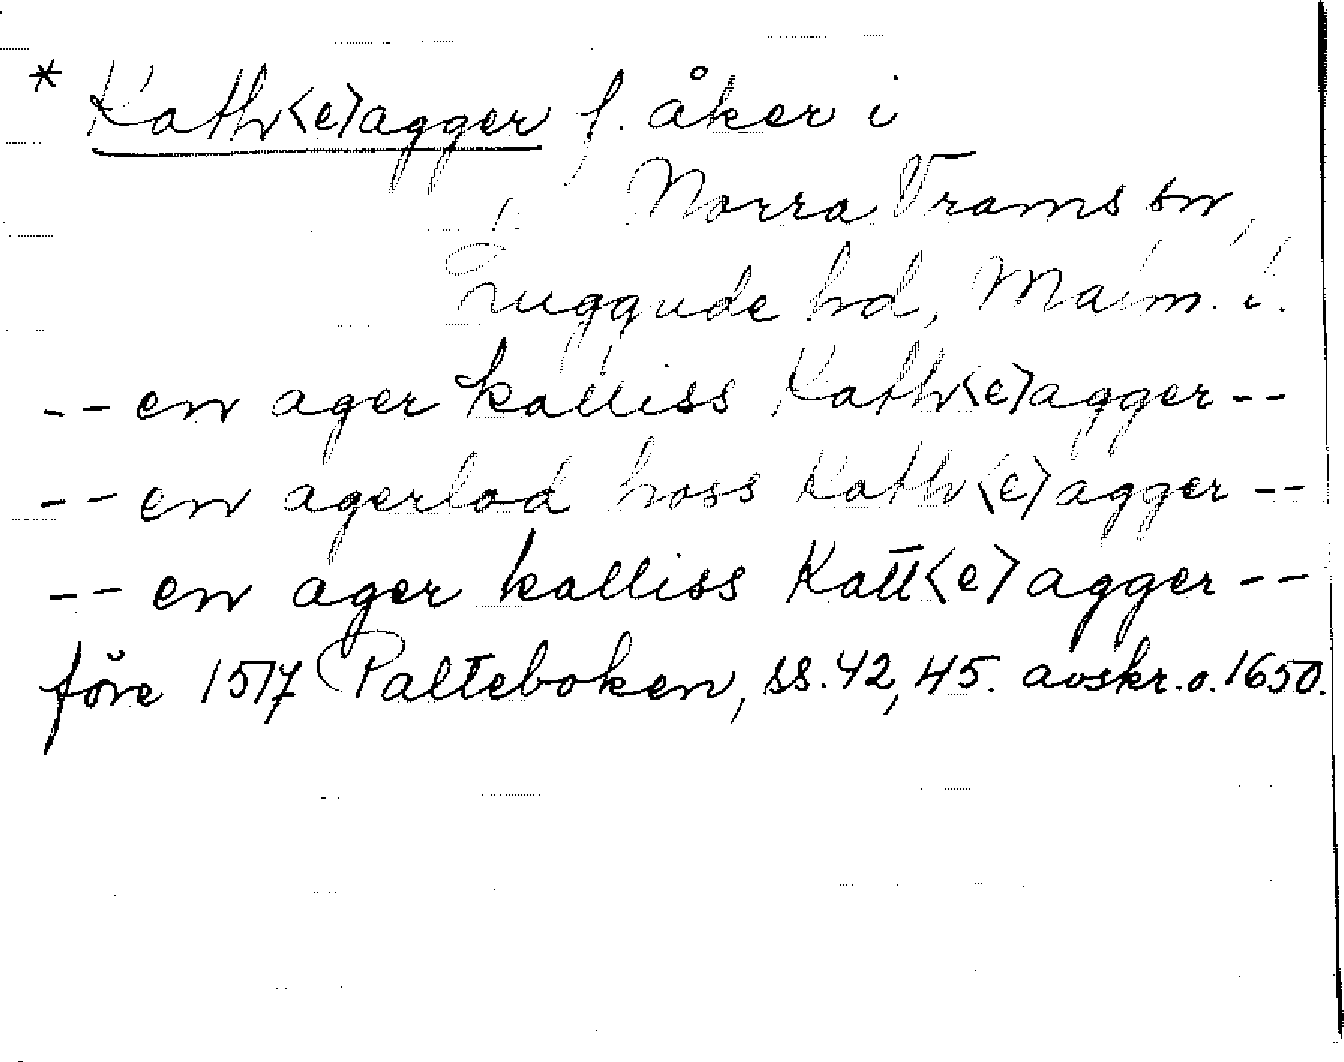 * Kath<e>agger f. åker i
Norra Vrams sn,
Luggude hd, Malm. l.
-- en ager kalliss Kath<e>agger --
-- en agerlod hoss Kath<e>agger --
-- en ager kalliss Katt<e>agger --
före 1517 Palteboken, ss. 42, 45. avskr. o. 1650.